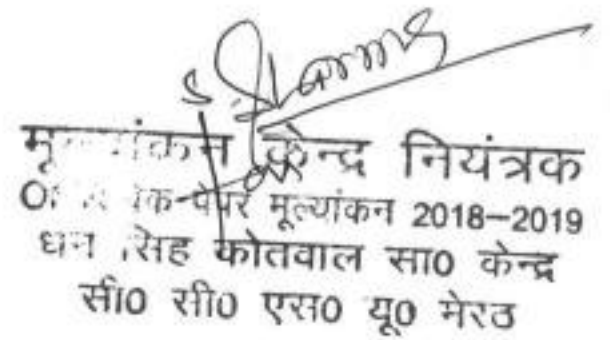 Sharma
मूल्यांकन केन्द्र नियंत्रक
बैक-पेपर मूल्यांकन 2018-2019
धन सिंह कोतवाल सा0 केन्द्र
सी0 सी0 एस0 यू0 मेरठ